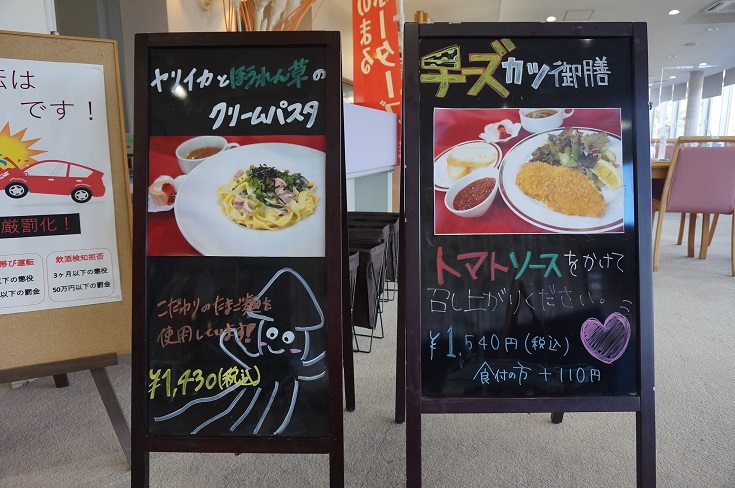 は
です!
厳罰化!
帯び運転
以下の懲役
以下の罰金
飲酒検知拒否
3ヶ月以下の懲役
50万円以下の罰金
ヤリイカとほうれん草の
クリームパスタ
こだわりのたまご麺を
使用しています!
¥1,430(税込)
のまる
チーズカツ御膳
トマトソースをかけて
召し上がりください。
¥1,540円(税込)
食付の方 +110円